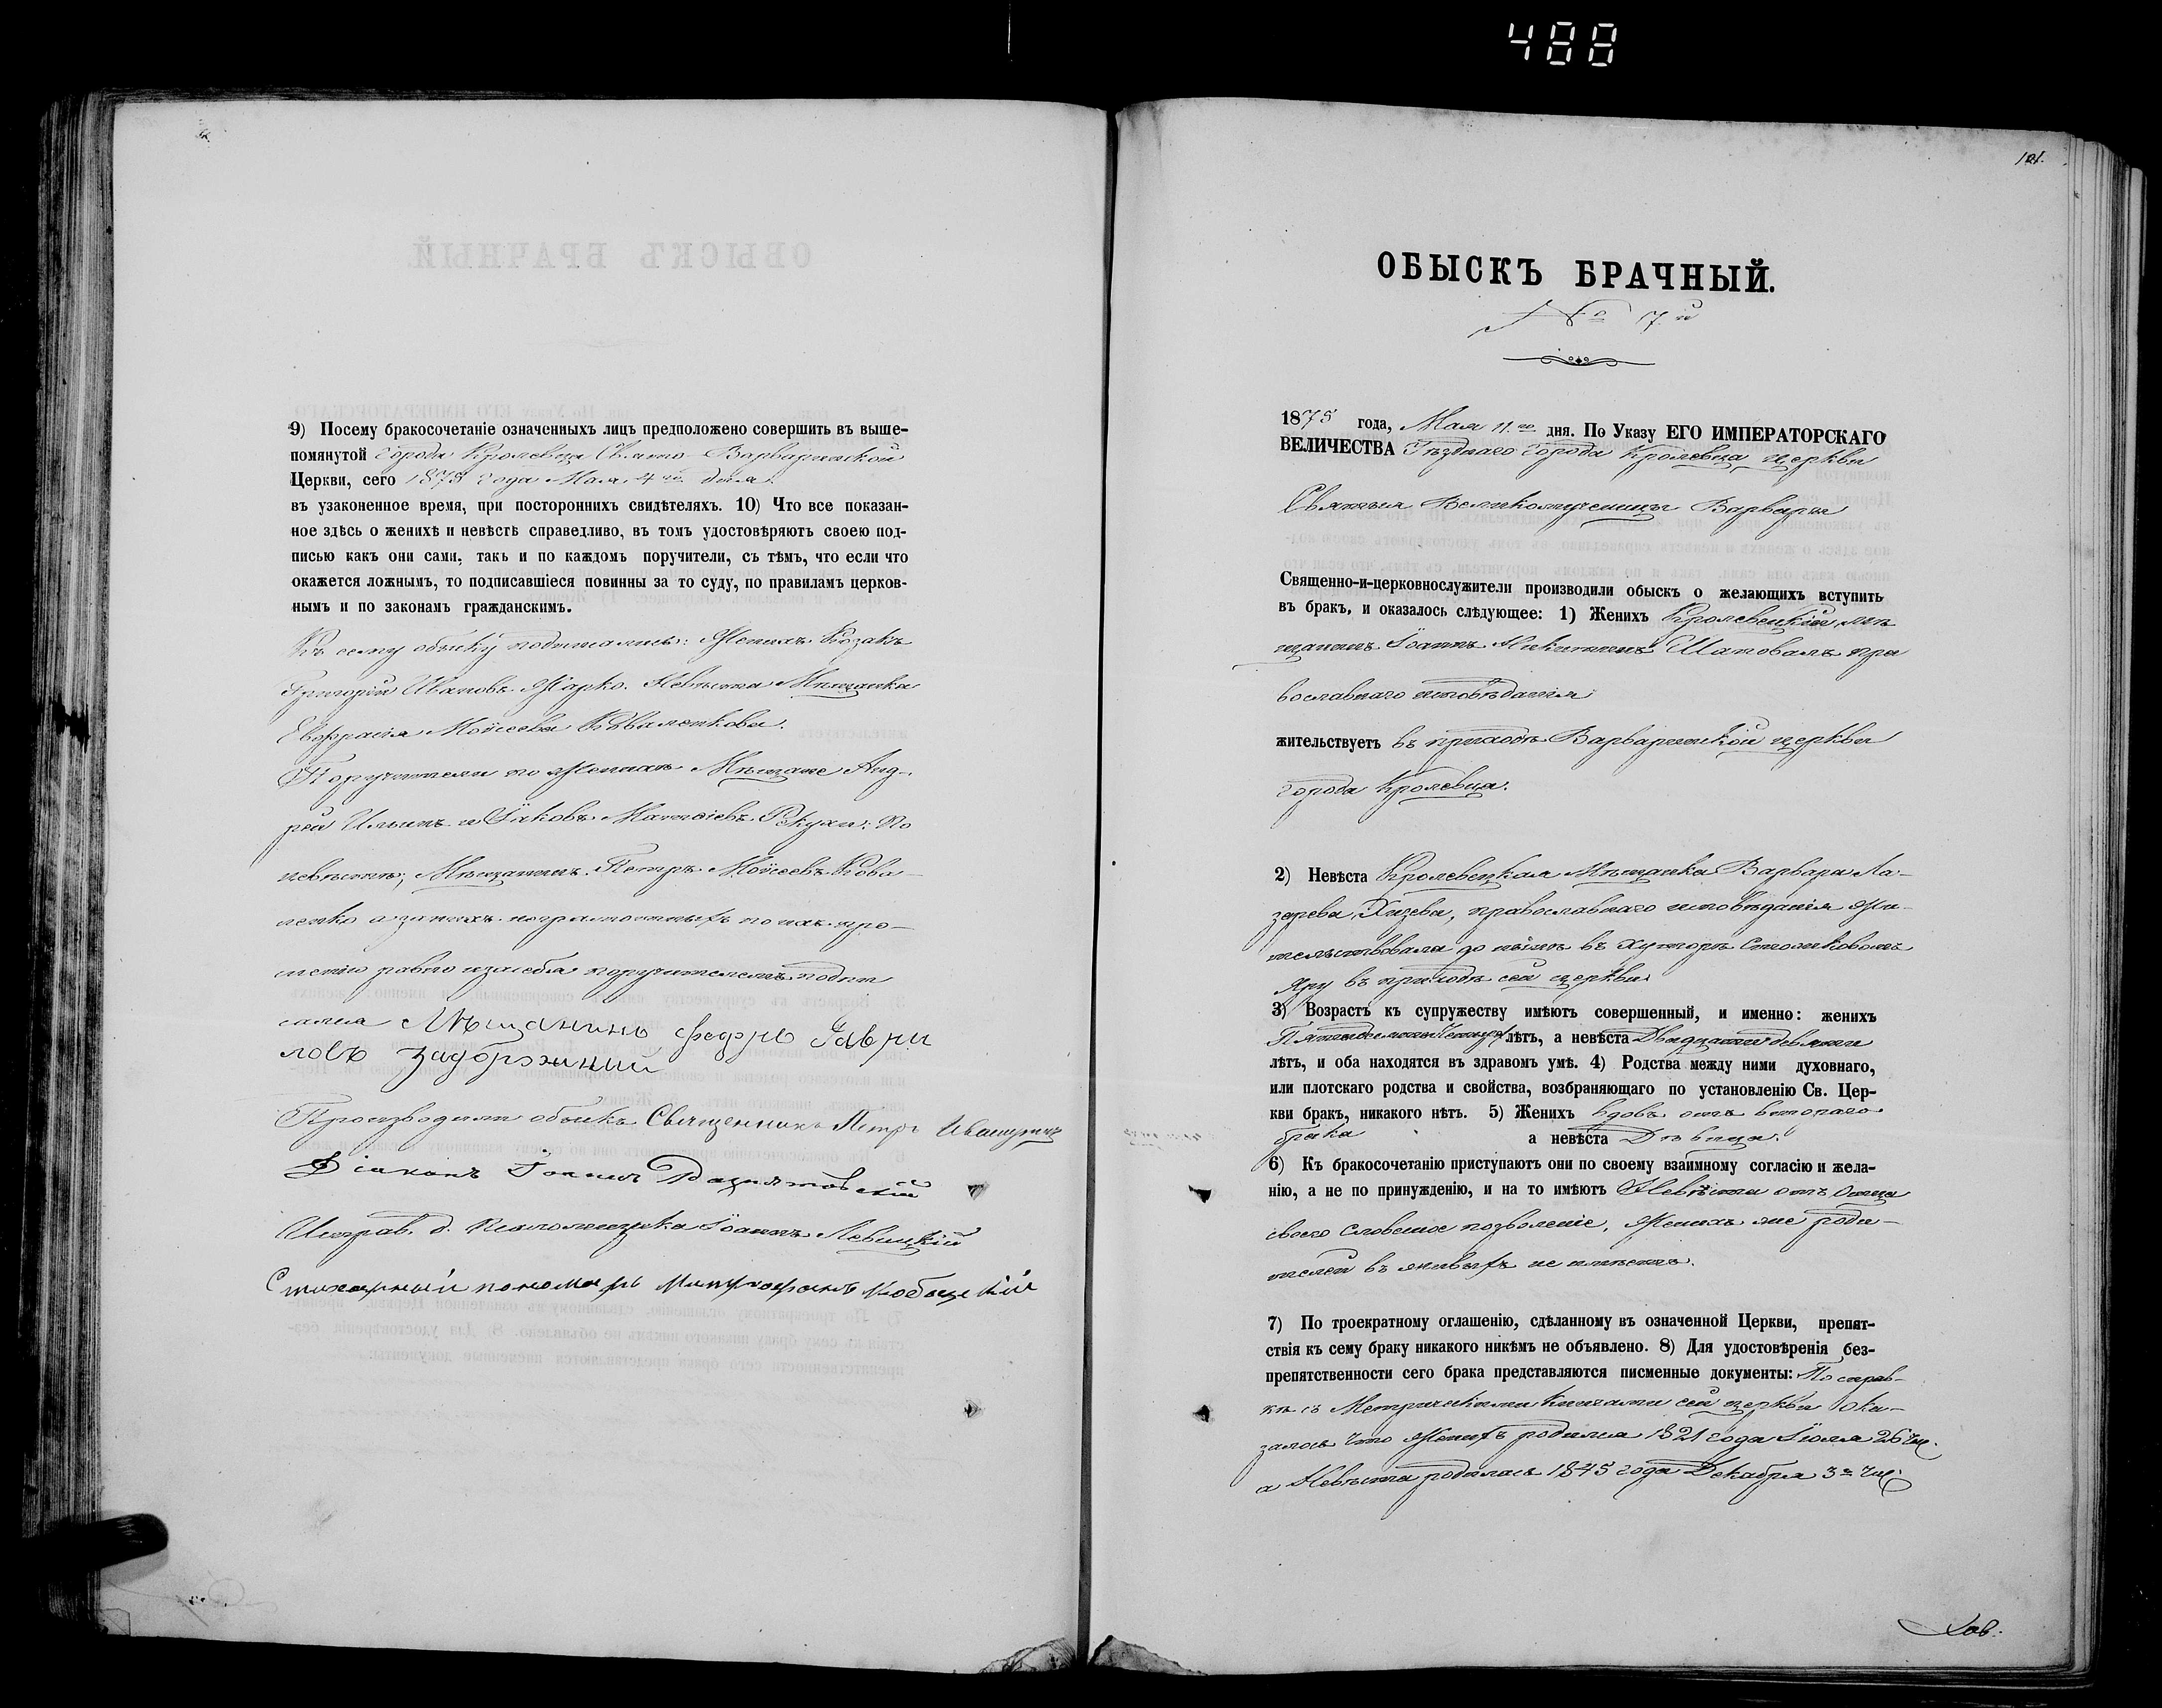 488
9) Посему бракосочетаніе означенныхъ лицъ предположено совершить въ выше-
помянутой Города Кролевца Свято-Варваринской
Церкви, сего 1875 года Мая 4го дня.
въ узаконенное время, при постороннихъ свидѣтеляхъ. 10) Что все показан-
ное здѣсь о женихѣ и невѣстѣ справедливо, въ томъ удостовѣряютъ своею под-
писью какъ они сами, такъ и по каждомъ поручители, съ тѣмъ, что если что
окажется ложнымъ, то подписавшіеся повинны за то суду, по правиламъ церков-
нымъ и по законамъ гражданскимъ.
Къ сему обыску подписались: Женихъ Козакъ
Григорій Ивановъ Жарко. Невѣста Мѣщанка
Евфрасія Моѵсеева Коваленкова.
Поручители по женихѣ Мѣщане Анд-
рей Ильинъ и Іаковъ Матѳіевъ Рекуан: По
невѣстѣ, Мѣщанинъ Петръ Моѵсеевъ Кова-
ленко а за нихъ неграмотныхъ по ихъ про-
шенію равно и за себя поручителемъ подпи
сался Мѣщанинъ Федоръ Гаври
ловъ
Производили обыскъ Священникъ Петръ
Діаконъ Іоаннъ
Исправ. д. Псаломщика Іоаннъ Левицкій
Стихарный пономарь Митрофанъ
121.
ОБЫСКЪ БРАЧНЫЙ.
№ 17.й
1875 года, Мая 11.го дня. По Указу ЕГО ИМПЕРАТОРСКАГО
ВЕЛИЧЕСТВА Уѣзднаго Города Кролевца, церкви
Святыя Великомученицы Варвары
Священно-и-церковнослужители производили обыскъ о желающихъ вступить
въ бракъ, и оказалось слѣдующее: 1) Женихъ Кролевецкій мѣ
щанинъ Іоаннъ Никитинъ Шаповалъ пра
вославнаго исповѣданія
жительствуетъ въ приходѣ Варваринской церкви
города Кролевца.
2) Невѣста Кролевецкая Мѣщанка Варвара Ла-
зарева Хизева, православнаго исповѣданія жи-
тельствовала до нынѣ въ хуторѣ
Яру въ приходѣ сей церкви
3) Возрастъ къ супружеству имѣютъ совершенный, и именно: женихъ
Пятьдесятъ Четыре лѣтъ, а невѣста Двадцати девяти
лѣтъ, и оба находятся въ здравомъ умѣ. 4) Родства между ними духовнаго,
или плотскаго родства и свойства, возбраняющаго по установленію Св. Цер-
кви бракъ, никакого нѣтъ. 5) Женихъ вдовъ отъ втораго
брака а невѣста Дѣвица.
6) Къ бракосочетанію приступаютъ они по своему взаимному согласію и жела-
нію, а не по принужденію, и на то имѣютъ Невѣста отъ Отца
своего словесное позволеніе, Женихъ же роди-
телей въ живыхъ не имѣетъ.
7) По троекратному оглашенію, сдѣланному въ означенной Церкви, препят-
ствія къ сему браку никакого никѣмъ не объявлено. 8) Для удостовѣренія без-
препятственности сего брака представляются писменные документы: По справ-
кѣ съ Метрическими книгами сей церкви ока-
залось что Женихъ родился 1821 года Іюля 26 чис.
а Невѣста родилась 1845 года Декабря 3го чис.